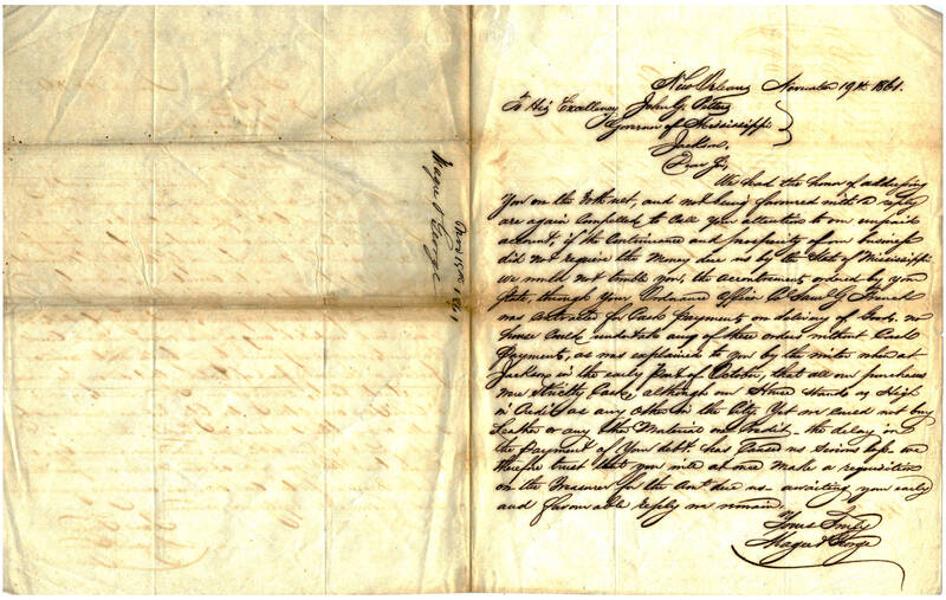 New Orleans November 19th 1861.
To His Excellency John J. Pettus
Governor of Mississippi
Jackson.
Dear Sir,
We had the honor of addressing
You on the inst, and not being favoured with a reply
are again Compelled to Call Your attention to our unpaid
account, if the Continuance and prosperity of our business
did not require the Money due us by the State of Mississippi
we would not trouble you, the accoutrements ordered by your
State, through Your Ordnance Officer Col Saml G French
was Contracted for Cash payments on delivery of Goods. no
house Could undertake any of these orders without Cash
Payments, as was explained to You by the writer when at
Jackson in the early Part of October, that all our purchases
were Strictly Cash, although our House Stands as High
in Credit as any other in the City Yet we Could not buy
Leather or any other Material on Credit - the delay in
the Payment of Your debt has Caused us Serious loss. we
therefore trust that you will at once Make a requisition
on the Treasurer for the Amt due us - awaiting your early
and favourable reply we remain,
Yours Truly
Magee & George
Magee & George
Nov 19th 1861